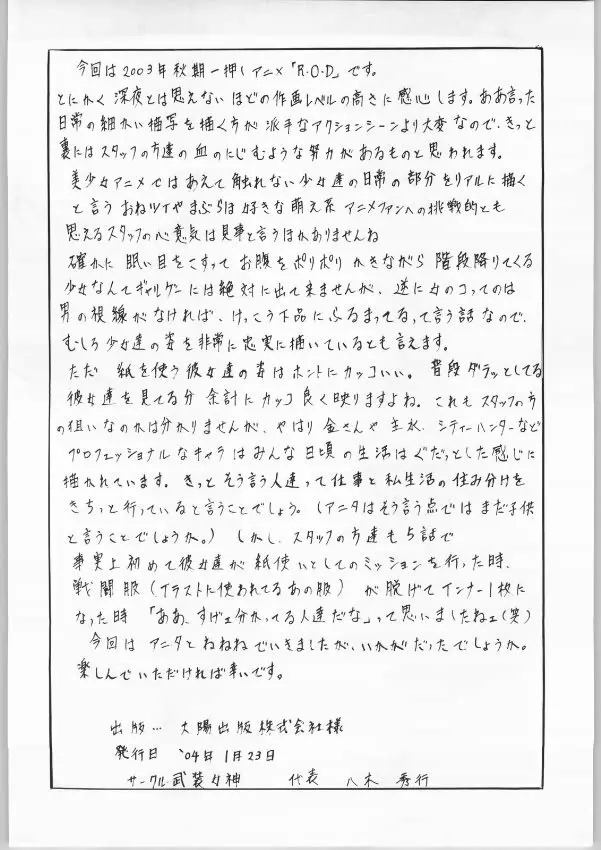 今回は2003年秋期一押しアニメ「R.O.D」です。
とにかく深夜とは思えないほどの作画レベルの高さに感心します。ああ言った
日常の細かい描写を描く方が派手なアクションシーンより大変なので、きっと
裏にはスタッフの方達の血のにじむような努力があるものと思われます。
美少女アニメではあえて触れない少女達の日常の部分をリアルに描く
と言うおねツイやまぶらほ好きな萌え系アニメファンへの挑戦的とも
思えるスタッフの心意気は見事と言うほかありませんね
確かに眠い目をこすってお腹をポリポリかきながら階段降りてくる
少女なんてギャルゲーには絶対に出て来ませんが、逆に女のコってのは
男の視線がなければ、けっこう下品にふるまってるって言う話なので、
むしろ少女達の姿を非常に忠実に描いているとも言えます。
ただ紙を使う彼女達の姿はホントにカッコいい。普段ダラッとしてる
彼女達を見てる分余計にカッコ良く映りますよね。これもスタッフの方
の狙いなのかは分かりませんが、やはり金さんや主水、シティーハンターなど
プロフェッショナルなキャラはみんな日頃の生活はぐだっとした感じに
描かれています。きっとそう言う人達って仕事と私生活の住み分けを
きちっと行っていると言うことでしょう。(アニタはそう言う点ではまだ子供
と言うことでしょうか。)しかし、スタッフの方達も5話で
事実上初めて彼女達が紙使いとしてのミッションを行った時、
戦闘服(イラストに使われてるあの服)が脱げてインナー1枚に
なった時「ああ、すげェ分かってる人達だな」って思いましたねェ(笑)
今回はアニタとねねねでいきましたが、いかがだったでしょうか。
楽しんでいただければ幸いです。
出版…大陽出版株式会社様
発行日 '04年1月23日
サークル武装女神 代表 八木秀行